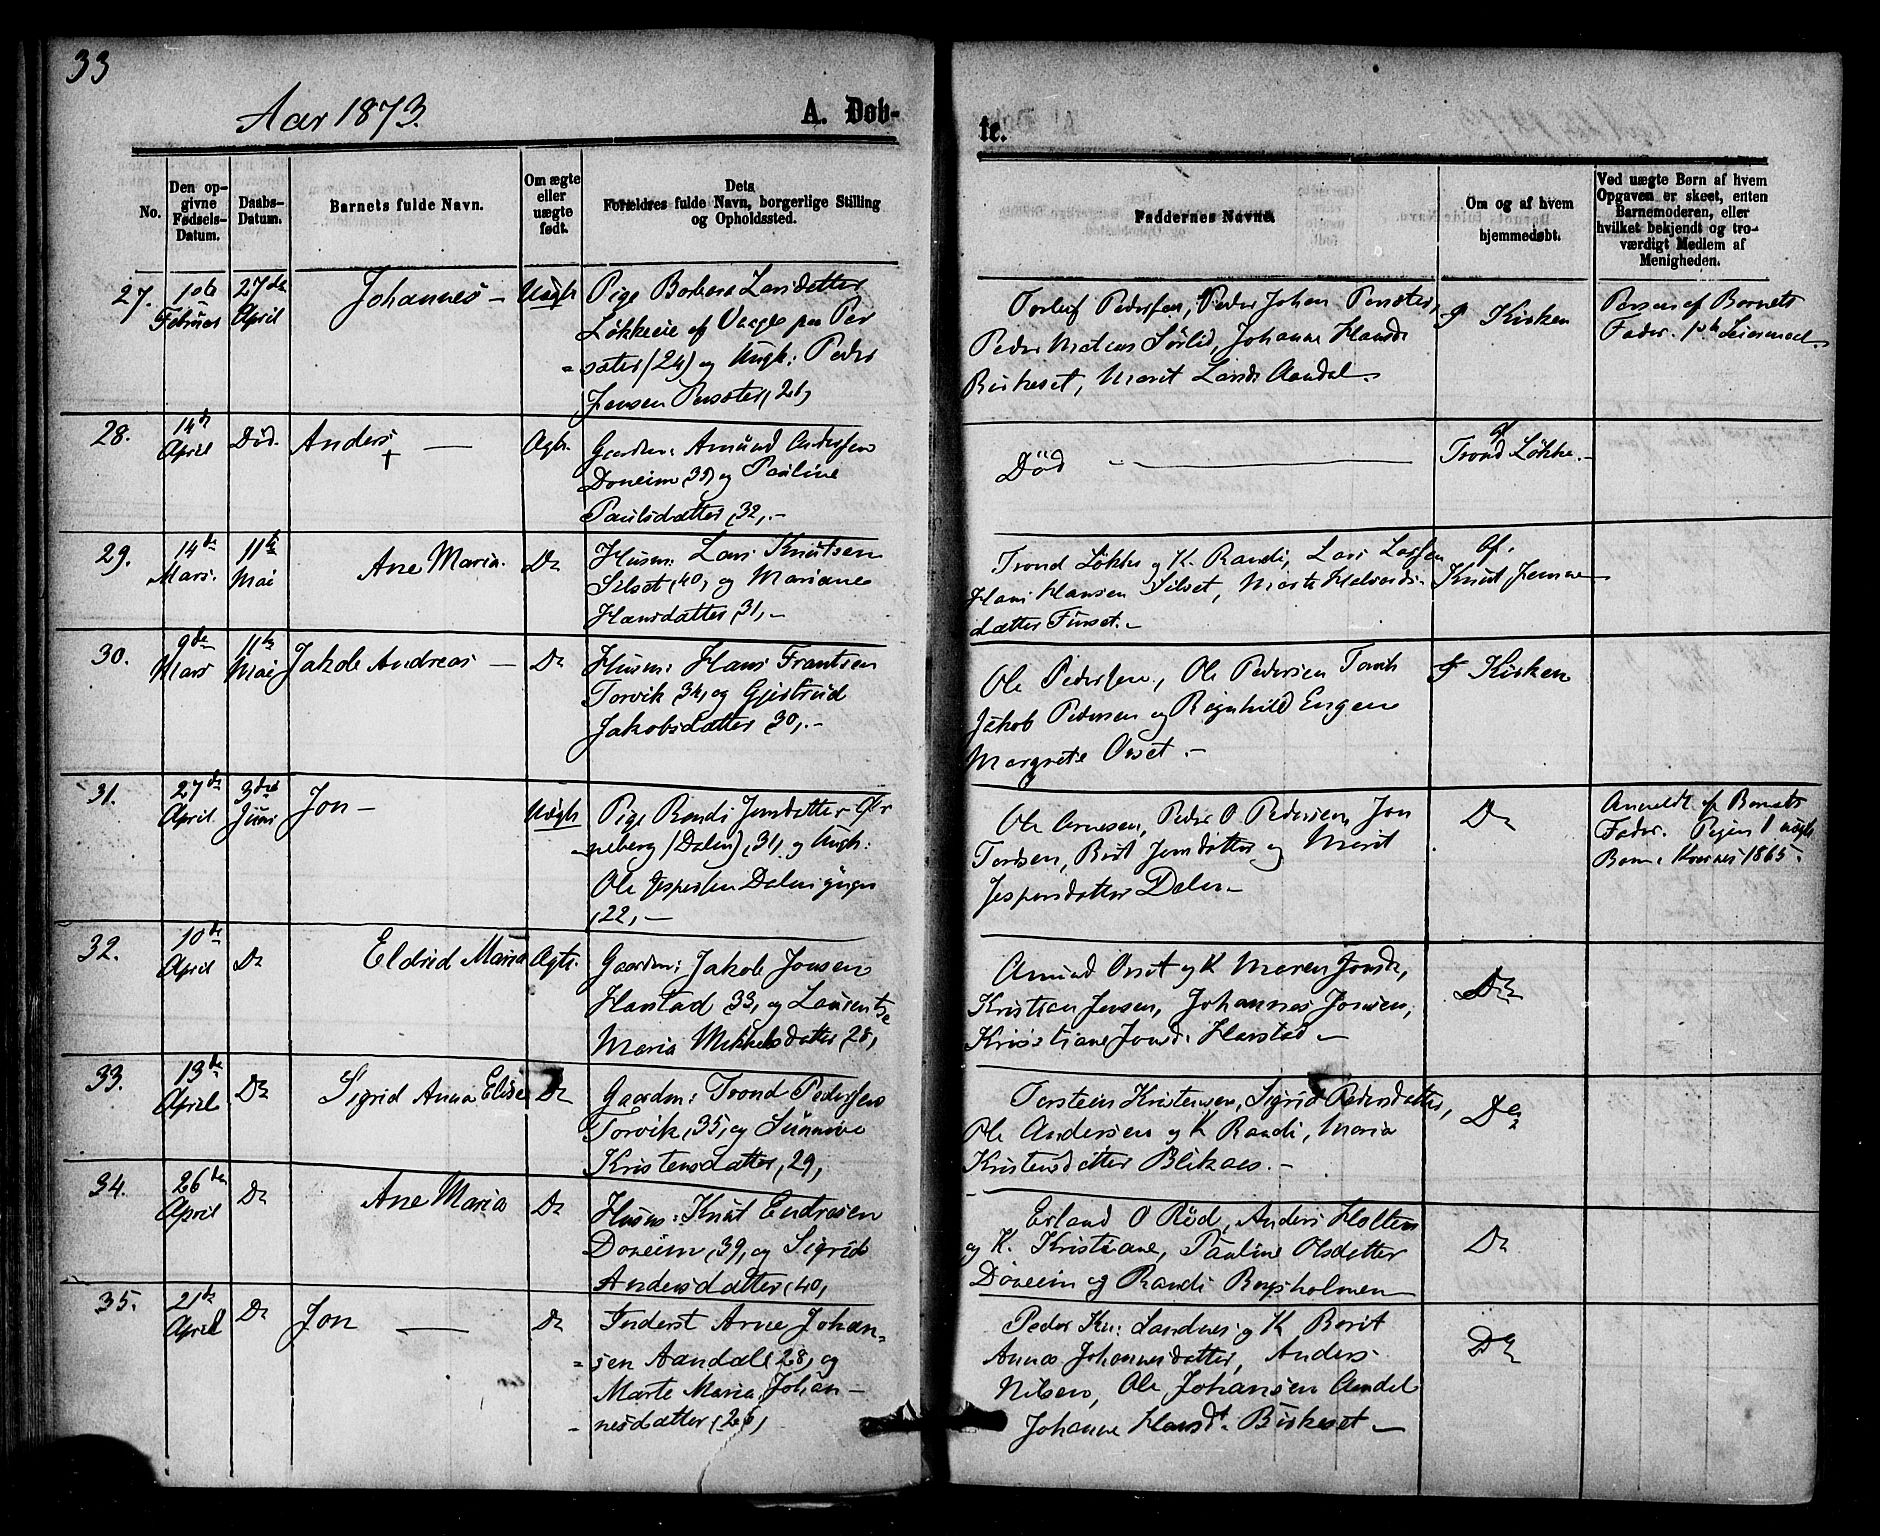 33
Aar 1873.
A. Døb-
te.
No.
Den op-
givne
Fødsels-
Datum.
Daabs-
Datum.
Barnets fulde Navn.
Om ægte
eller
uægte
født.
Dets
Forældres fulde Navn, borgerlige Stilling
og Opholdssted.
Faddernes Navne.
Om og af hvem
hjemmedøbt.
Ved uægte Børn af hvem
Opgaven er skeet, enten
Barnemoderen, eller
hvilket bekjendt og tro-
værdigt Medlem af
Menigheden.
27.
Februar
27de
April
Johannes –
Uægte
Pige Larsdatter
Løkkeie af
sæter (24) og Ungk: Peder
Jensen
Pedersen, Peder Johan
Peder Sørlid, Johanne Hansd
Birkeset, Marit Larsd. Aandal.
I Kirken
af Barnets
Fader.
28.
14de
April
Død.
Anders
†
Ægte.
Gaardm: Amund Andersen
Doneim, 35, og Pauline
Paulsdatter, 32, –
Død
af
Trond Løkke.
29.
14de
Mars.
11te
Mai
Ane Maria.
Do
Husm: Lars Knutsen
Silset, 40, og Mariane
Hansdatter, 31, –
Trond Løkke og K. Randi, Lars Larsen
Hans Hansen Silset, Marte Halvards-
datter Furset. –
af.
Knut
30.
9de
Mars
11te
Mai
Jakob Andreas –
Do
Husm: Hans Frantsen
Torvik, 34, og Gjertrud
Jakobsdatter, 30, –
Ole Pedersen, Ole Pedersen Torvik
Jakob Pedersen og Ragnhild Engen
Margrete Orset –
I Kirken
31.
27de
April
3die
Juni
Jon –
Uægte
Pige Randi Jonsdatter
neberg (Dalen), 31, og Ungk:
Ole Jespersen
, 22, –
Ole Arnesen, Peder O Pedersen Jon
Tordsen, Berit Jonsdatter og Marit
Jespersdatter Dalen –
Do
Anmeldt af Barnets
Fader. 1 uægte
Barn. 1865.
32.
10de
April
Do
Eldrid Maria
Ægte.
Gaardm: Jakob Jonsen
Harstad, 33, og Laurentse
Maria Mikkelsdatter, 28,
Amund Orset og K Maren Jonsd.,
Kristian Jensen, Johannes Jonsen,
Kristiane Jonsd. Harstad –
Do
33.
13de
April
Do
Sigrid Anna Elise
Do
Gaardm: Trond Pedersen
Torvik, 35, og Sunnive
Kristensdatter, 29,
Torstein Kristensen, Sigrid Pedersdatter,
Ole Andersen og K Randi, Maria
Kristensdatter Blikaas. –
Do
34.
26de
April
Do
Ane Maria
Do
Husm: Knut Endresen
Doneim, 39, og Sigrid
Andersdatter, 40,
Erland O Rød, Anders Holten
og K. Kristiane, Pauline Olsdatter
Doneim og Randi
Do
35.
21de
April
Do
Jon
Do
Inderst Arne Johan-
sen Aandal, 28, og
Marte Maria Johan-
nesdatter, 26,
Peder Kn: Sandnes og K Berit
Anne Johannesdatter, Anders
Nilsen, Ole Johansen Aandal
Johanne Hansd. Birkeset –
Do